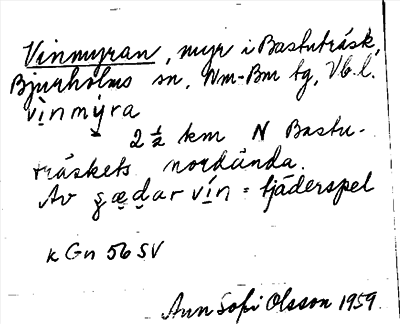 Vinmyran, myr i Bastuträsk,
Bjurholms sn, Nm-Bm tg, Vb.l.
vìnmýra
2 ½ km N Bastu-
träskets nordända.
Av gæđar vín = fjäderspel
k Gn 56 SV
Ann Sofi Olsson 1959.